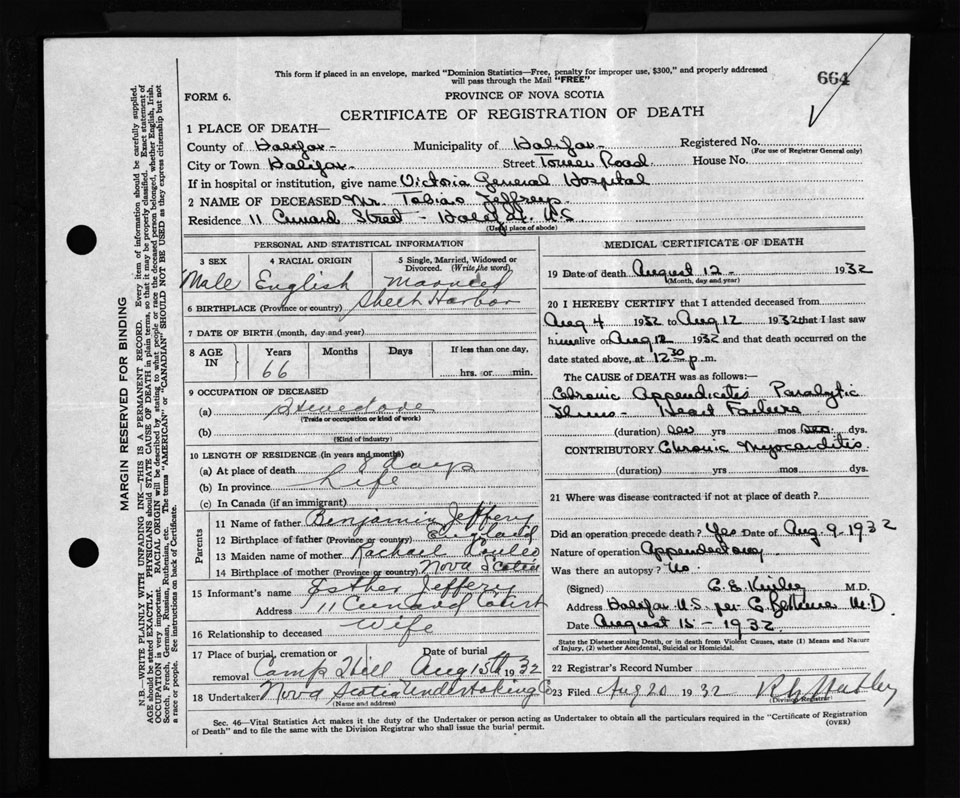 This form if placed in an envelope, marked "Dominion Statistics—Free, penalty for improper use, $300," and properly addressed
will pass through the Mail "FREE"
664
FORM 6.
PROVINCE OF NOVA SCOTIA
CERTIFICATE OF REGISTRATION OF DEATH
1 PLACE OF DEATH—
County of Halifax - Municipality of Halifax - Registered No.
(For use of Registrar General only)
City or Town Halifax - Street Tower Road House No.
If in hospital or institution, give name Victoria General Hospital
2 NAME OF DECEASED Mr. Tobias Jeffreys
Residence 11 Cunard Street - Halifax N.S.
(Usual place of abode)
PERSONAL AND STATISTICAL INFORMATION
3 SEX 4 RACIAL ORIGIN 5 Single, Married, Widowed or Divorced. (Write the word)
Male English Married
6 BIRTHPLACE (Province or country) Sheet Harbor
7 DATE OF BIRTH (month, day and year)
8 AGE IN Years Months Days If less than one day,
66 hrs. or min.
9 OCCUPATION OF DECEASED
(a)
(Trade or occupation or kind of work)
(b)
(Kind of industry)
10 LENGTH OF RESIDENCE (in years and months)
(a) At place of death 8 days
(b) In province Life
(c) In Canada (if an immigrant)
Parents
11 Name of father Benjamin Jeffery
12 Birthplace of father (Province or country) England
13 Maiden name of mother Rachael
14 Birthplace of mother (Province or country) Nova Scotia
15 Informant's name Esther Jeffery
Address 11 Cunard
16 Relationship to deceased Wife
17 Place of burial, cremation or removal Date of burial
Camp Hill Aug 15th 1932
18 Undertaker Nova Scotia Undertaking Co
(Name and address)
MEDICAL CERTIFICATE OF DEATH
19 Date of death August 12 - 1932
(Month, day and year)
20 I HEREBY CERTIFY that I attended deceased from
Aug 4 1932 to Aug 12 1932 that I last saw
him alive on Aug 12 1932 and that death occurred on the
date stated above, at 12 30 p.m.
The CAUSE OF DEATH was as follows:—
Chronic Appendicitis Paralytic
Ileus - Heart Failure
(duration) yrs mos dys.
CONTRIBUTORY Chronic Myocarditis
(duration) yrs mos dys.
21 Where was disease contracted if not at place of death?
Did an operation precede death? Yes Date of Aug. 9. 1932
Nature of operation Appendectomy
Was there an autopsy? No
(Signed) C. E. M.D.
Address Halifax N.S. per M.D.
Date August 15 - 1932.
State the Disease causing Death, or in death from Violent Causes, state (1) Means and Nature
of Injury, (2) whether Accidental, Suicidal or Homicidal.
22 Registrar's Record Number
23 Filed Aug 20 1932
(Division Registrar)
Sec. 46—Vital Statistics Act makes it the duty of the Undertaker or person acting as Undertaker to obtain all the particulars required in the "Certificate of Registration
of Death" and to file the same with the Division Registrar who shall issue the burial permit.
(OVER)
MARGIN RESERVED FOR BINDING
N.B.—WRITE PLAINLY WITH UNFADING INK—THIS IS A PERMANENT RECORD. Every item of information should be carefully supplied.
AGE should be stated EXACTLY. PHYSICIANS should STATE CAUSE OF DEATH in plain terms, so that it may be properly classified. Exact statement of
OCCUPATION is very important. RACIAL ORIGIN will be described by stating to what people or race the deceased person belonged, whether English, Irish,
Scotch, French, German, Russian, Ruthenian, etc. The terms "AMERICAN" or "CANADIAN" SHOULD NOT BE USED as they express citizenship but not
a race or people. See instructions on back of Certificate.